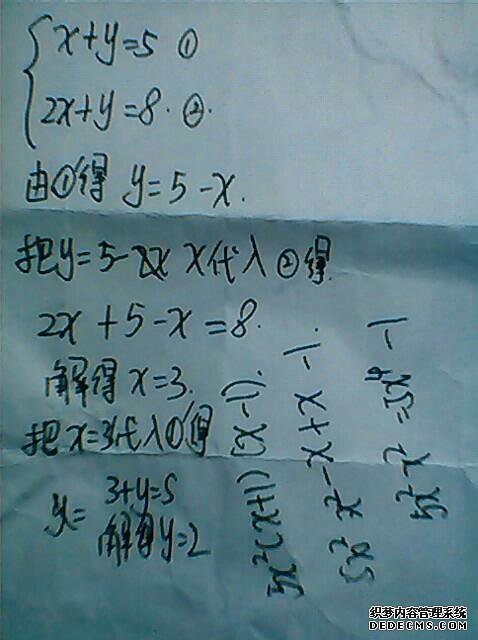 x+y=5 ①
2x+y=8. ②.
由①得 y=5-x.
把y=5-x代入②得
2x+5-x=8.
解得 x=3.
把x=3代入①得
3+y=5
y=
解得y=2
5x²(x+1)(x-1).
5x² x²-x+x-1.
5x² x² =5x⁴-1
织梦内容管理系统
DEDECMS.COM